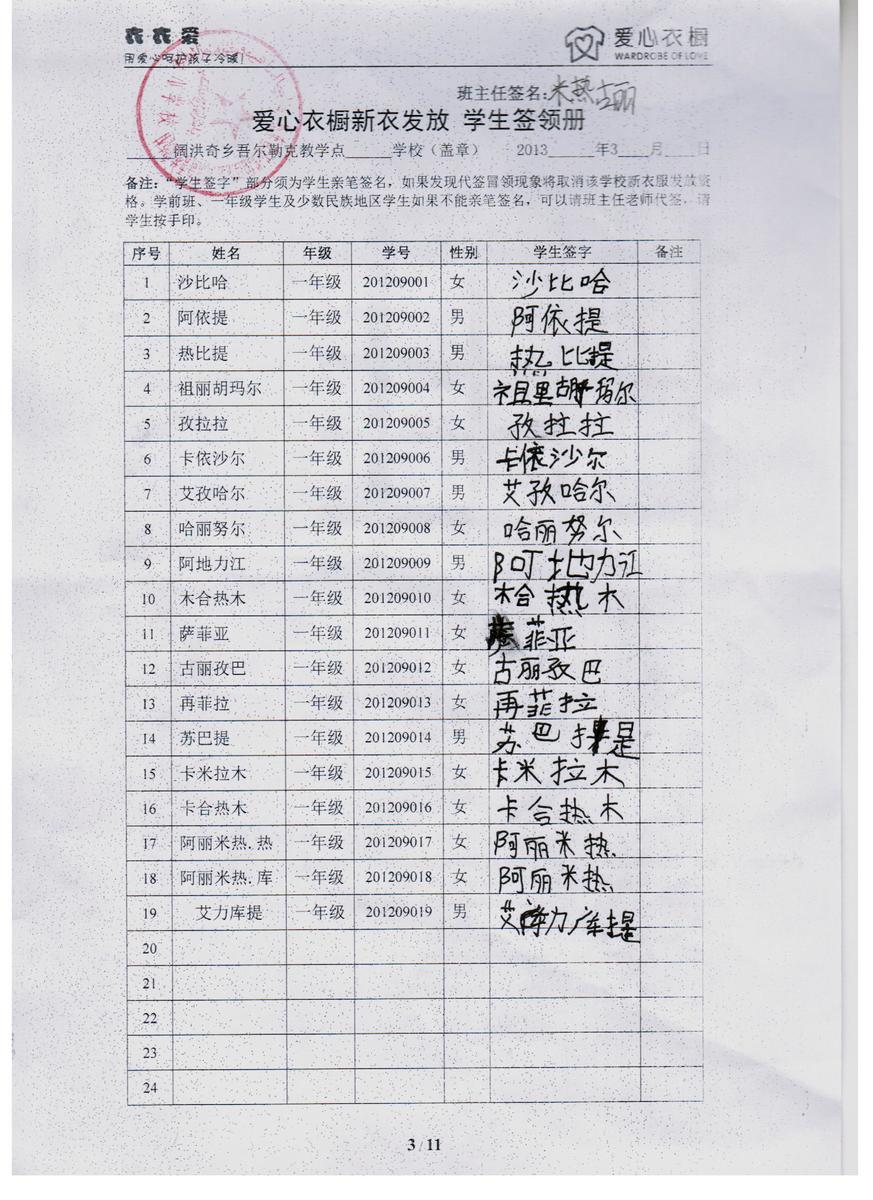 衣衣爱
用爱心呵护孩子冷暖!
爱心衣橱
WARDROBE OF LOVE
班主任签名:米热古丽
爱心衣橱新衣发放 学生签领册
阔洪奇乡吾尔勒克教学点______学校（盖章） 2013______年3____月____日
备注：“学生签字”部分须为学生亲笔签名，如果发现代签冒领现象将取消该学校新衣服发放资
格。学前班、一年级学生及少数民族地区学生如果不能亲笔签名，可以请班主任老师代签，请
学生按手印。
序号 姓名 年级 学号 性别 学生签字 备注
1 沙比哈 一年级 201209001 女 沙比哈
2 阿依提 一年级 201209002 男 阿依提
3 热比提 一年级 201209003 男 热比提
4 祖丽胡玛尔 一年级 201209004 女 祖里胡玛尔
5 孜拉拉 一年级 201209005 女 孜拉拉
6 卡依沙尔 一年级 201209006 男 卡依沙尔
7 艾孜哈尔 一年级 201209007 男 艾孜哈尔
8 哈丽努尔 一年级 201209008 女 哈丽努尔
9 阿地力江 一年级 201209009 男 阿地力江
10 木合热木 一年级 201209010 女 木合热木
11 萨菲亚 一年级 201209011 女 菲亚
12 古丽孜巴 一年级 201209012 女 古丽孜巴
13 再菲拉 一年级 201209013 女 再菲拉
14 苏巴提 一年级 201209014 男 苏巴提
15 卡米拉木 一年级 201209015 女 卡米拉木
16 卡合热木 一年级 201209016 女 卡合热木
17 阿丽米热.热 一年级 201209017 女 阿丽米热
18 阿丽米热.库 一年级 201209018 女 阿丽米热
19 艾力库提 一年级 201209019 男 艾力库提
20
21
22
23
24
3 / 11